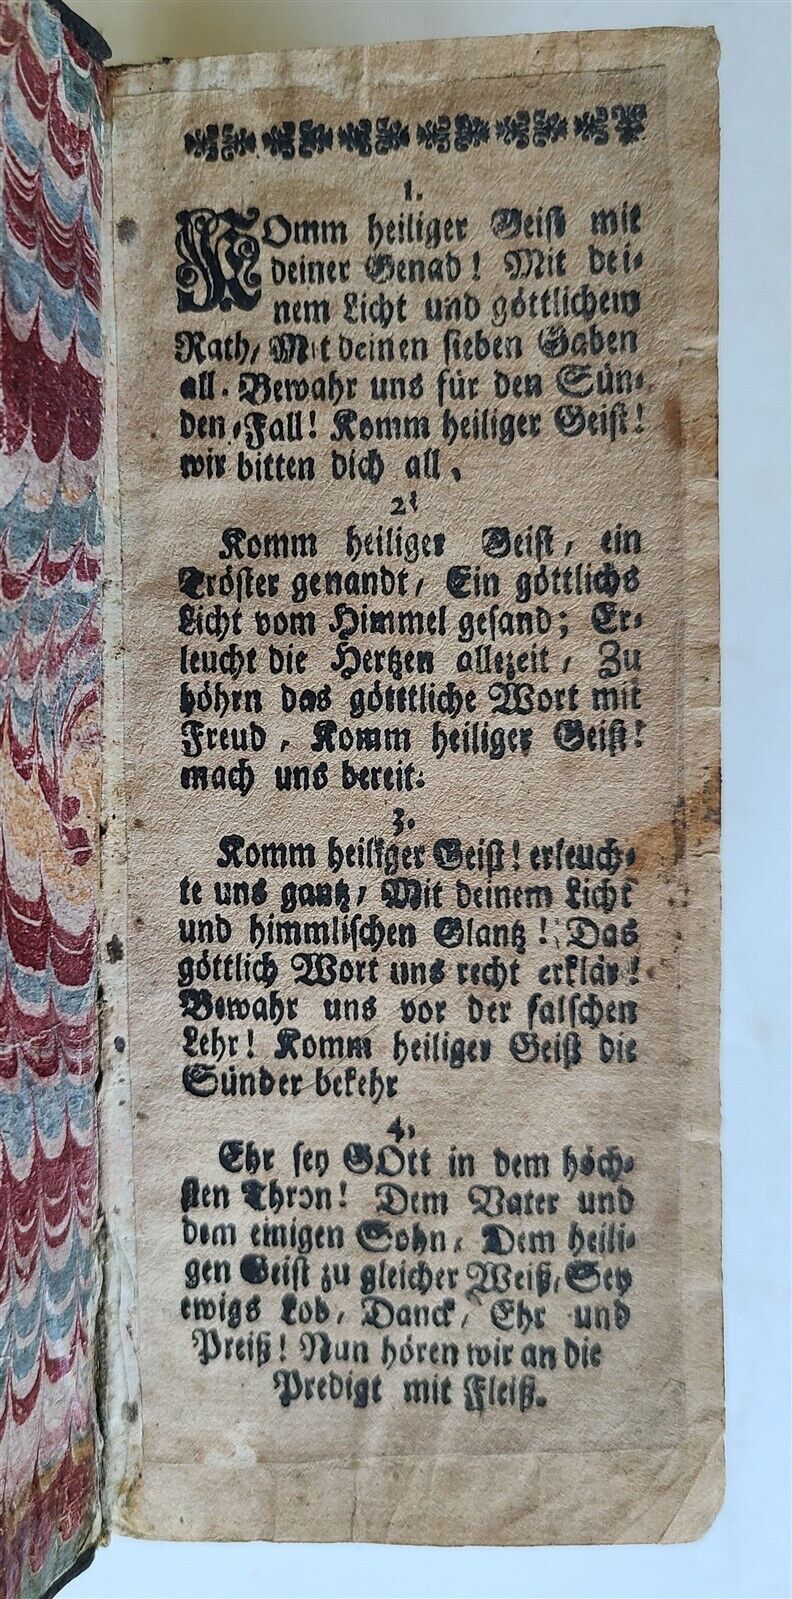 1.
KOmm heiliger Geist mit
deiner Genad! Mit dei-
nem Licht und göttlichem
Rath/ Mit deinen sieben Gaben
all. Bewahr uns für den Sün-
den-Fall! Komm heiliger Geist!
wir bitten dich all.
2.
Komm heiliger Geist/ ein
Tröster genandt/ Ein göttlichs
Licht vom Himmel gesand; Er-
leucht die Hertzen allezeit/ Zu
höhrn das götttliche Wort mit
Freud/ Komm heiliger Geist!
mach uns bereit.
3.
Komm heiliger Geist! erleuch-
te uns gantz/ Mit deinem Licht
und himmlischen Glantz! Das
göttlich Wort uns recht erklär!
Bewahr uns vor der falschen
Lehr! Komm heiliger Geist die
Sünder bekehr
4.
Ehr sey GOtt in dem höch-
sten Thron! Dem Vater und
dem einigen Sohn/ Dem heili-
gen Geist zu gleicher Weiß/ Sey
ewigs Lob/ Danck/ Ehr und
Preiß! Nun hören wir an die
Predigt mit Fleiß.